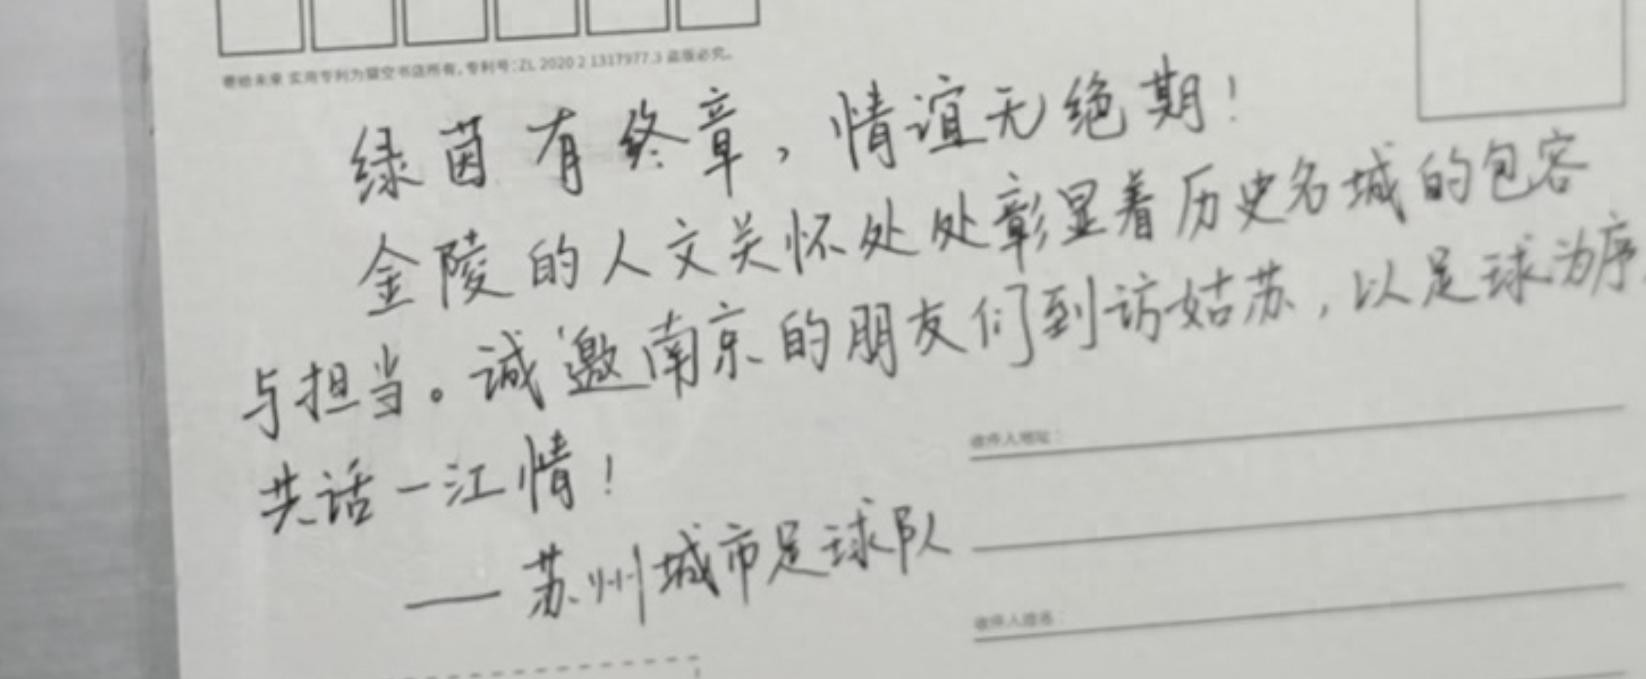 寄给未来 实用专利为猫空书店所有，专利号：ZL 2020 2 1317977.3 盗版必究。
绿茵有终章，情谊无绝期！
金陵的人文关怀处处彰显着历史名城的包容
与担当。诚邀南京的朋友们到访姑苏，以足球为序，
共话一江情！
——苏州城市足球队
收件人地址：
收件人姓名：